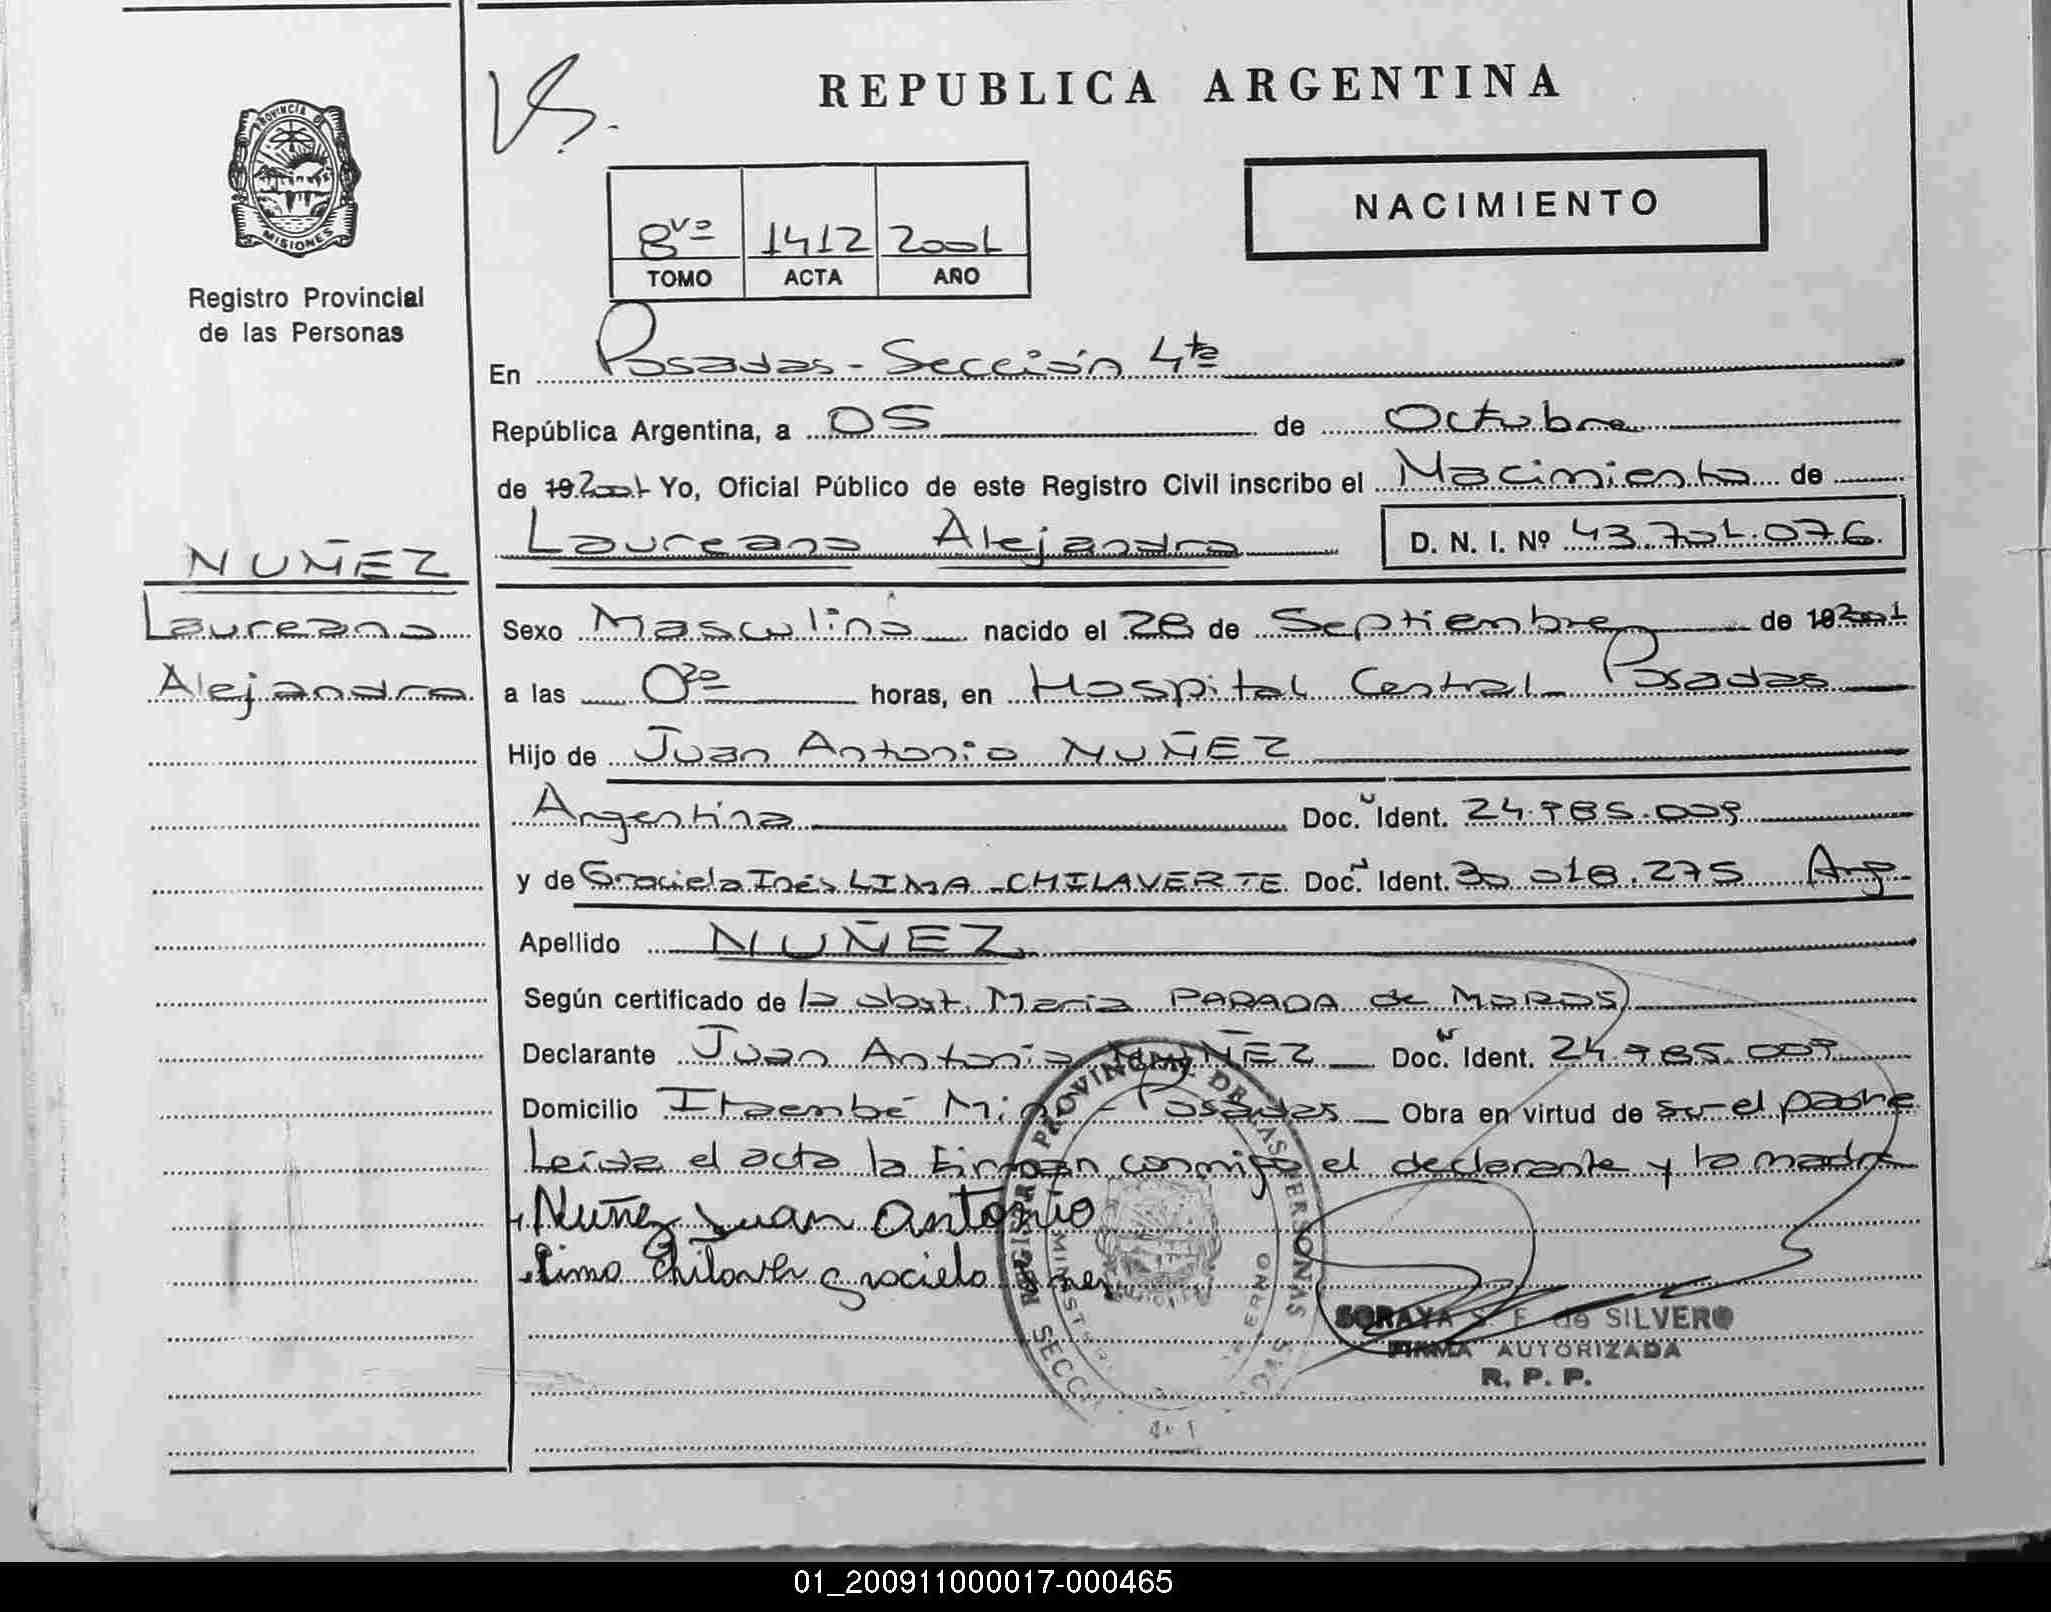 VS.
REPUBLICA ARGENTINA
PROVINCIA DE
MISIONES
8vo 1412 2001
TOMO ACTA AÑO
NACIMIENTO
Registro Provincial
de las Personas
En Posadas - Sección 4ta
República Argentina, a 05 de Octubre
de 19 2001 Yo, Oficial Público de este Registro Civil inscribo el Nacimiento de
Laureano Alejandro D. N. I. Nº 43.701.076
NUÑEZ
Laureano
Alejandro
Sexo Masculino nacido el 28 de Septiembre de 19 2001
a las horas, en Hospital Central Posadas
Hijo de Juan Antonio NUÑEZ
Argentina Doc. Ident. 24.985.009
y de Graciela Inés LIMA CHILAVERTE Doc. Ident. 30.018.275 Arg
Apellido NUÑEZ
Según certificado de la obst. María PARADA de MOROS
Declarante Juan Antonio NUÑEZ Doc. Ident. 24.985.009
Domicilio Itaembé Miní - Posadas Obra en virtud de ser el padre
Leída el acta la firman conmigo el declarante y la madre
Nuñez Juan Antonio
Lima Graciela Ines
REGISTRO PROVINCIAL DE LAS PERSONAS
SORAYA S. F. de SILVERO
FIRMA AUTORIZADA
R. P. P.
01_200911000017-000465